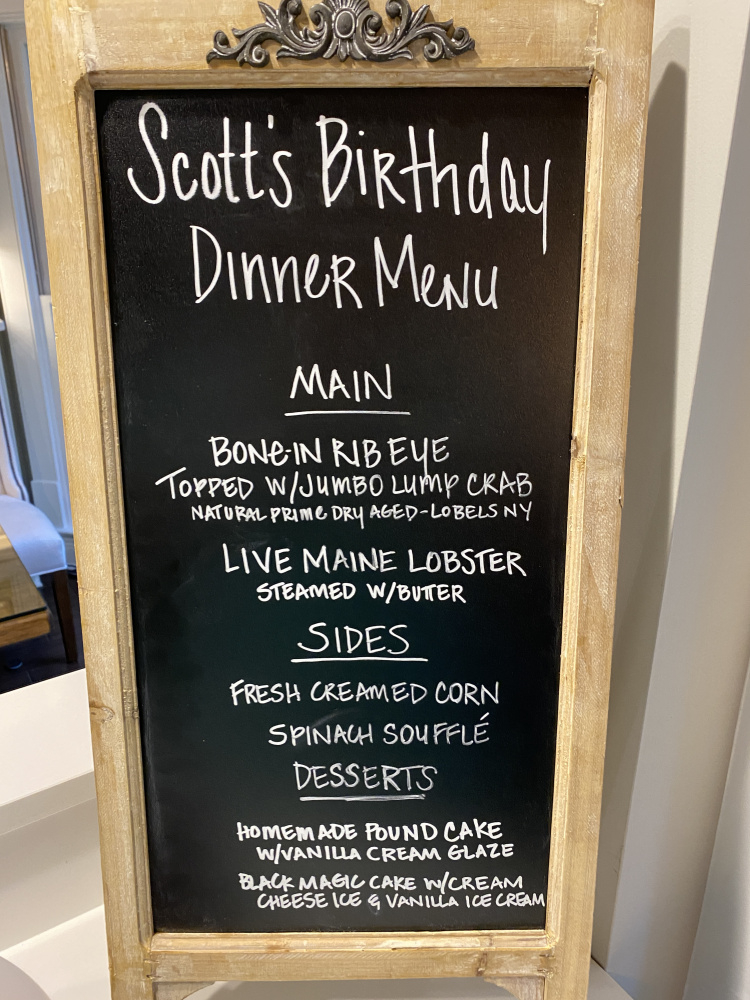 Scott's Birthday
Dinner Menu
MAIN
BONE-IN RIB EYE
TOPPED W/JUMBO LUMP CRAB
NATURAL PRIME DRY AGED-LOBELS NY
LIVE MAINE LOBSTER
STEAMED W/BUTTER
SIDES
FRESH CREAMED CORN
SPINACH SOUFFLÉ
DESSERTS
HOMEMADE POUND CAKE
W/VANILLA CREAM GLAZE
BLACK MAGIC CAKE W/CREAM
CHEESE ICE & VANILLA ICE CREAM